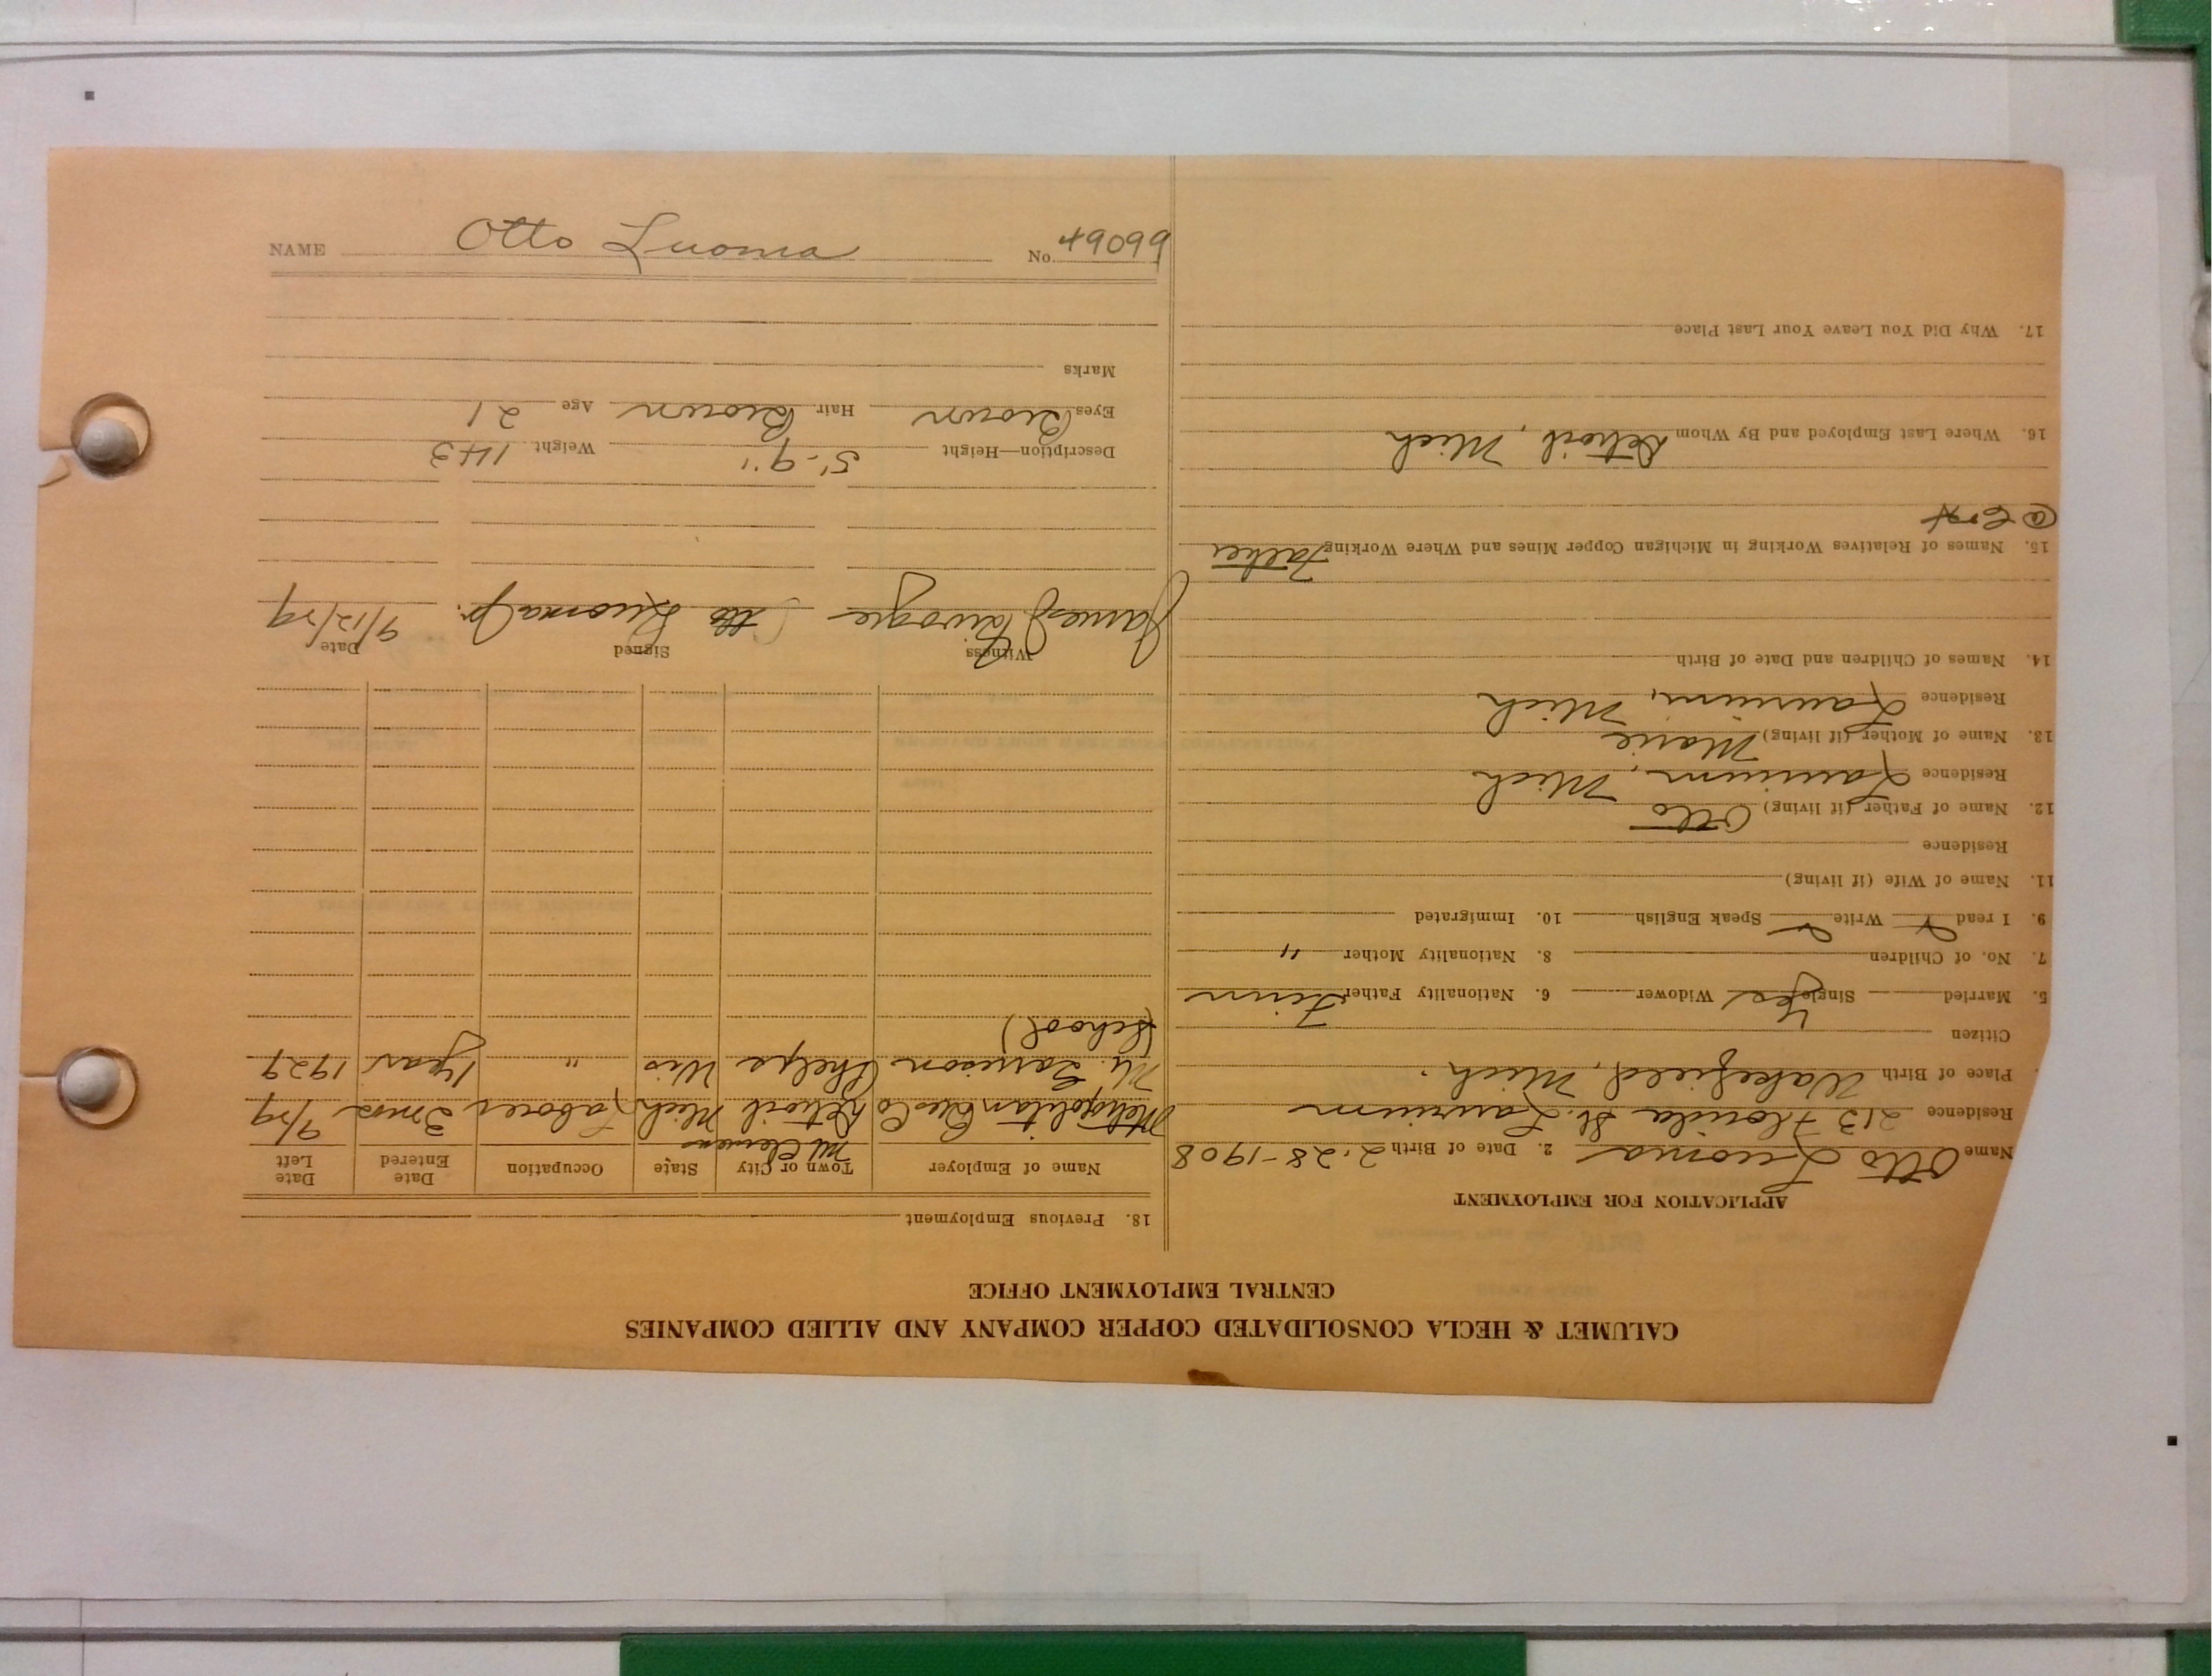 CALUMET & HECLA CONSOLIDATED COPPER COMPANY AND ALLIED COMPANIES
CENTRAL EMPLOYMENT OFFICE
APPLICATION FOR EMPLOYMENT
Name Otto Luoma 2. Date of Birth 2-28-1908
Residence 213 Florida St. Laurium
Place of Birth Wakefield, Mich.
Citizen
5. Married Single Yes Widower 6. Nationality Father Finn
7. No. of Children 8. Nationality Mother "
9. I read Write Speak English 10. Immigrated
11. Name of Wife (if living)
Residence
12. Name of Father (if living) Otto
Residence Laurium, Mich
13. Name of Mother (if living) Marie
Residence Laurium, Mich
14. Names of Children and Date of Birth
15. Names of Relatives Working in Michigan Copper Mines and Where Working Father
@
16. Where Last Employed and By Whom Detroit, Mich
17. Why Did You Leave Your Last Place
18. Previous Employment
Name of Employer Town or City State Occupation Date Entered Date Left
Mt Clemens
Metropolitan Co Detroit Mich Laborer 3 mos 9/29
Mr. Garrison Phelps Wis " 1 year 1927
(School)
Witness Signed Date
James Otto Luoma Jr. 9/12/29
Description—Height 5'-9" Weight 143
Eyes Brown Hair Brown Age 21
Marks
NAME Otto Luoma No. 49099